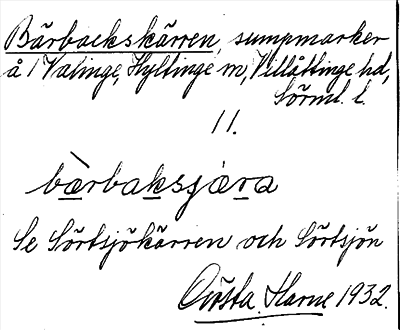 Bärbackskärren, sumpmarker
å 1 Valinge, Hyltinge sn, Villåttinge hd,
Sörml. l.
11.
bær̀baksjæ̀ra
Se Sörtsjökärren och Sörtsjön
Gösta Harne 1932.